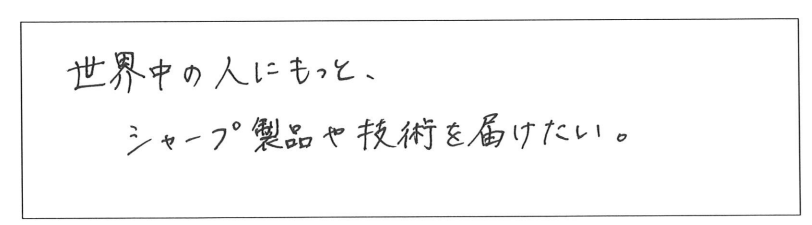 世界中の人にもっと、
シャープ製品や技術を届けたい。